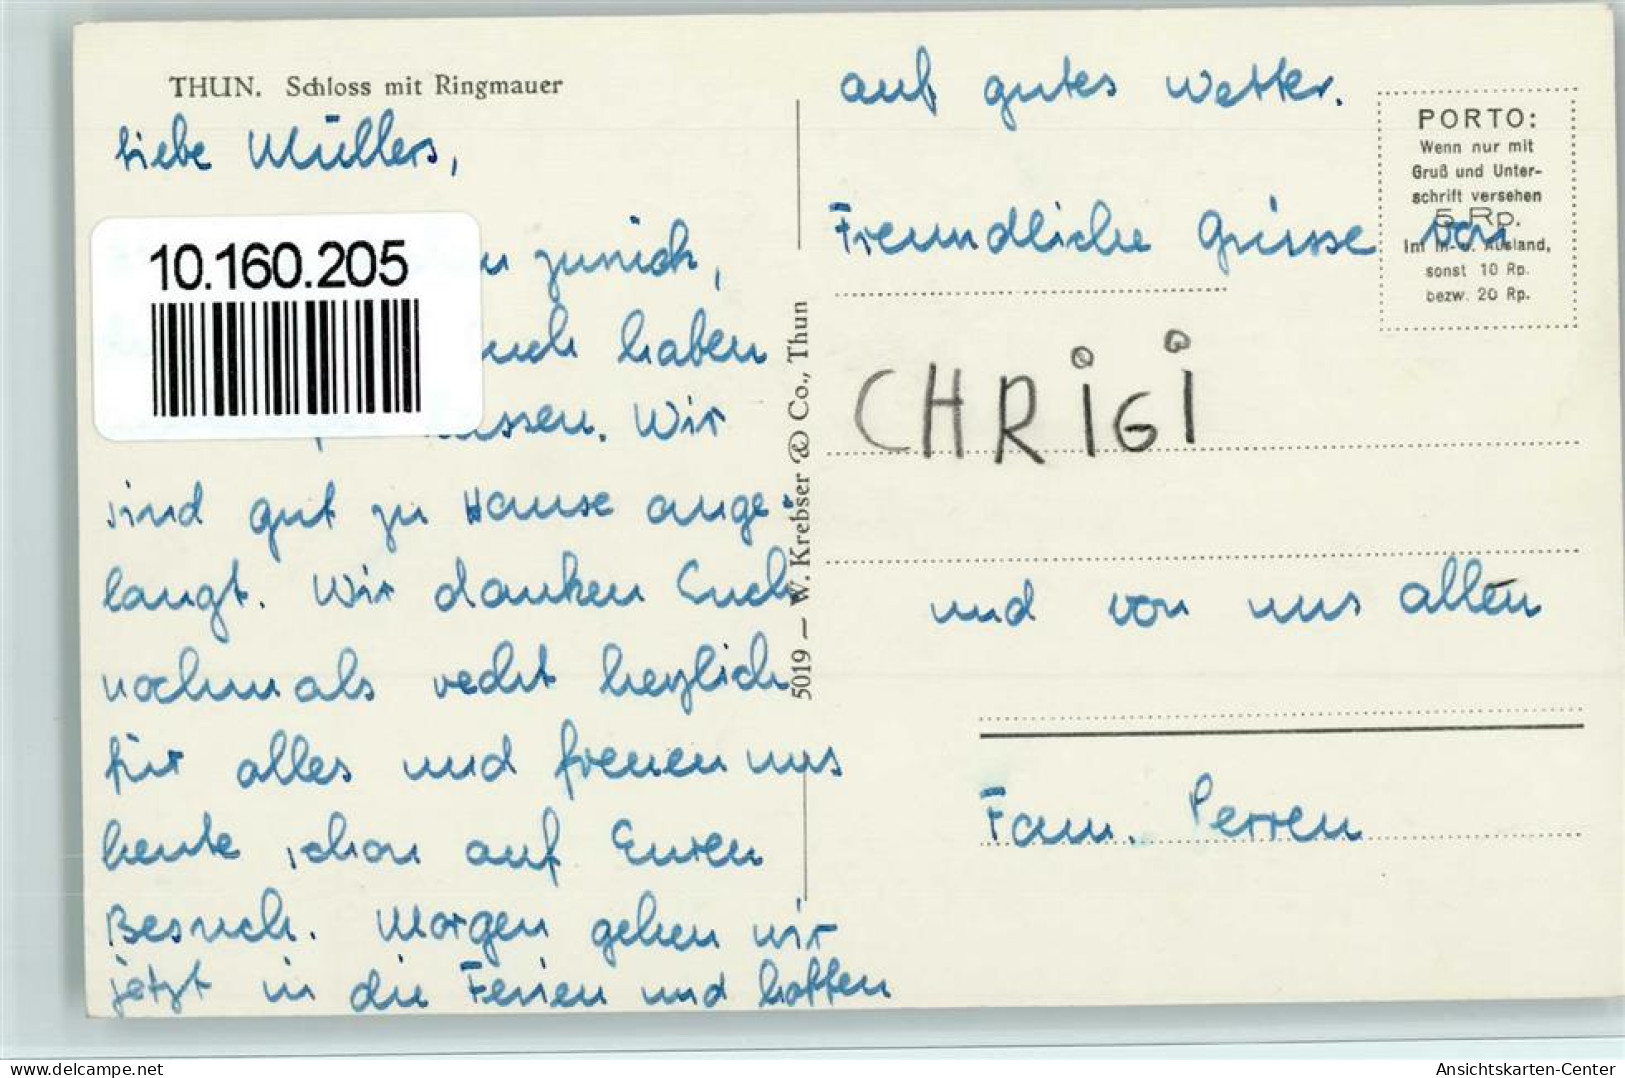 THUN. Schloss mit Ringmauer
Liebe Müllers,
10.160.205
zurück,
haben
Wir
sind gut zu Hause ange-
langt. Wir danken Euch
nochmals recht herzlich
für alles und freuen uns
heute schon auf Euren
Besuch. Morgen gehen wir
jetzt in die Ferien und hoffen
5019 — W. Krebser & Co., Thun
auf gutes Wetter.
PORTO:
Wenn nur mit
Gruß und Unter-
schrift versehen
5 Rp.
im In- u. Ausland,
sonst 10 Rp.
bezw. 20 Rp.
Freundliche Grüsse von
CHRIGI
und von uns allen
Fam. Perren
Ansichtskarten-Center